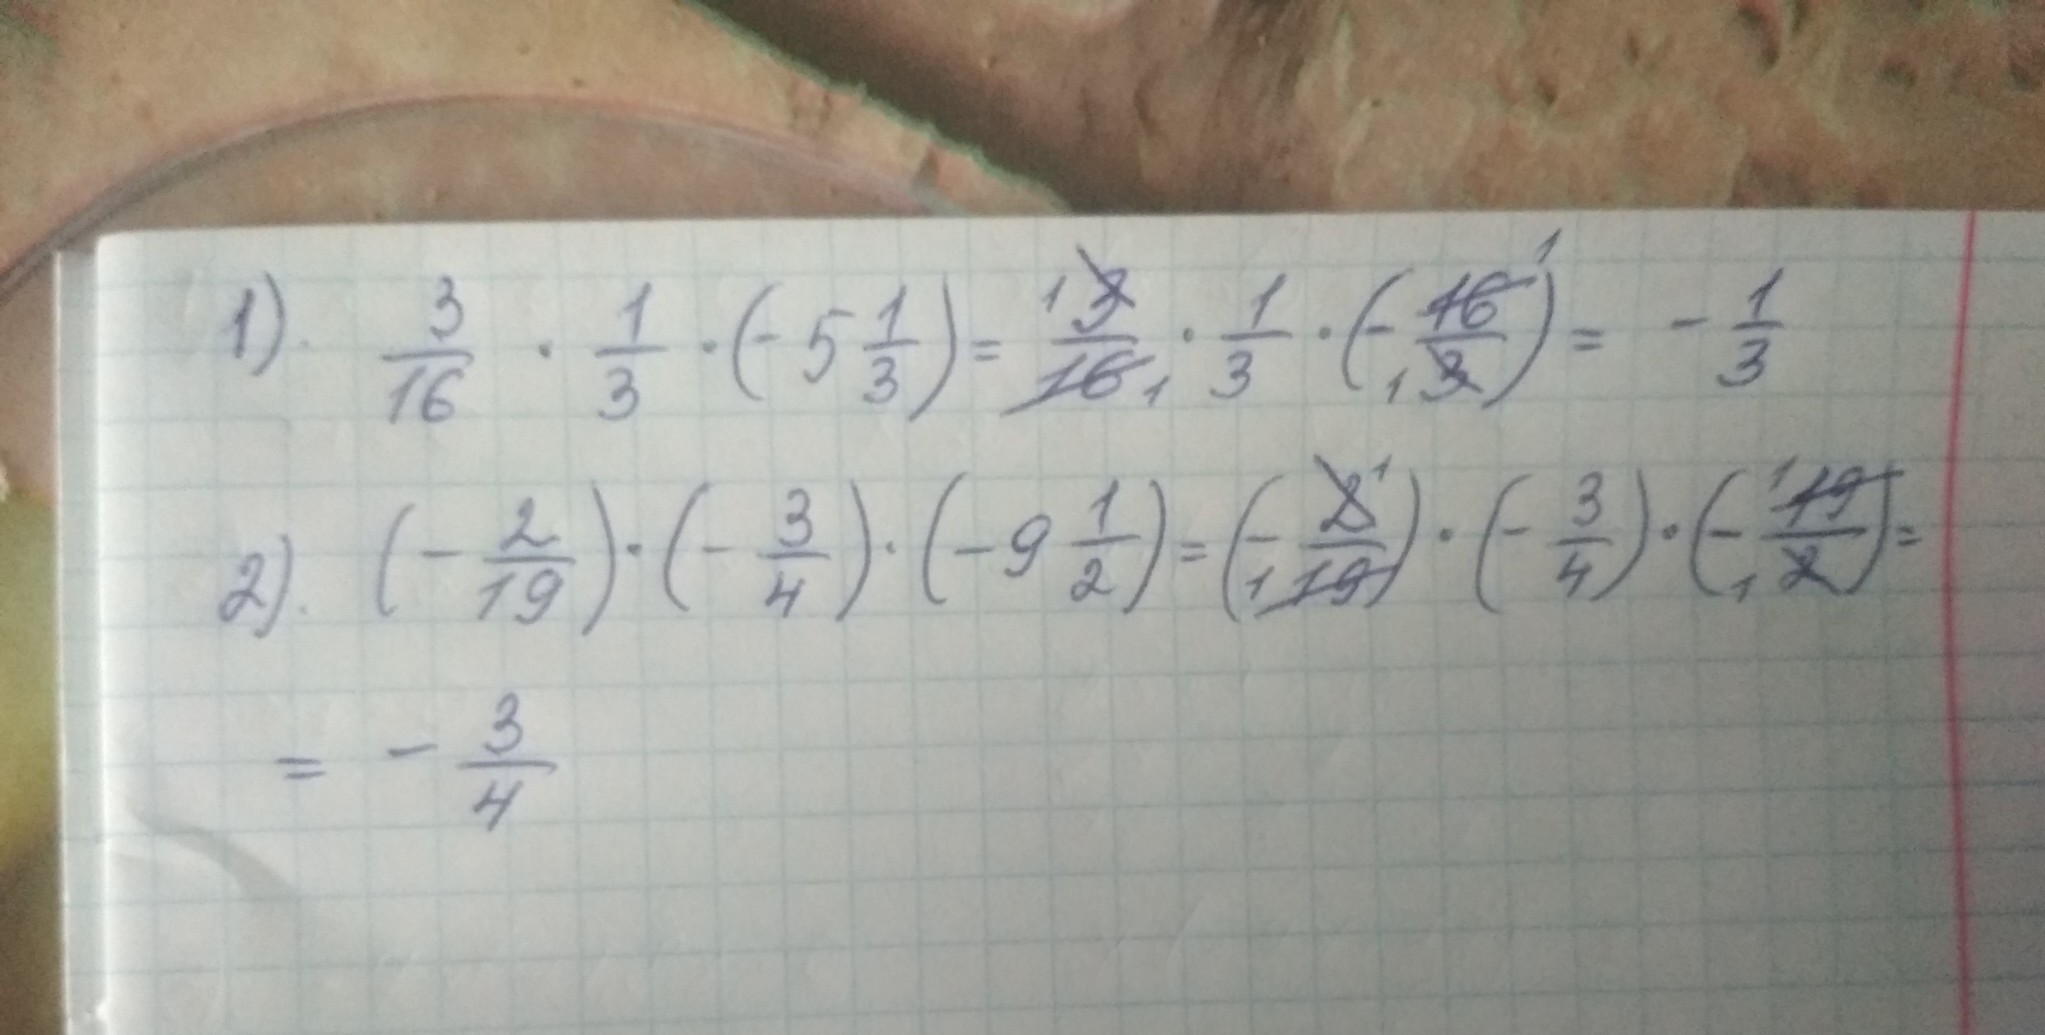 1). 3/16 · 1/3 · (- 5 1/3) = 1 3/16 1 · 1/3 · (- 16 1/1 3) = - 1/3
2). (- 2/19) · (- 3/4) · (- 9 1/2) = (- 2 1/1 19) · (- 3/4) · (- 1 19/1 2) =
= - 3/4